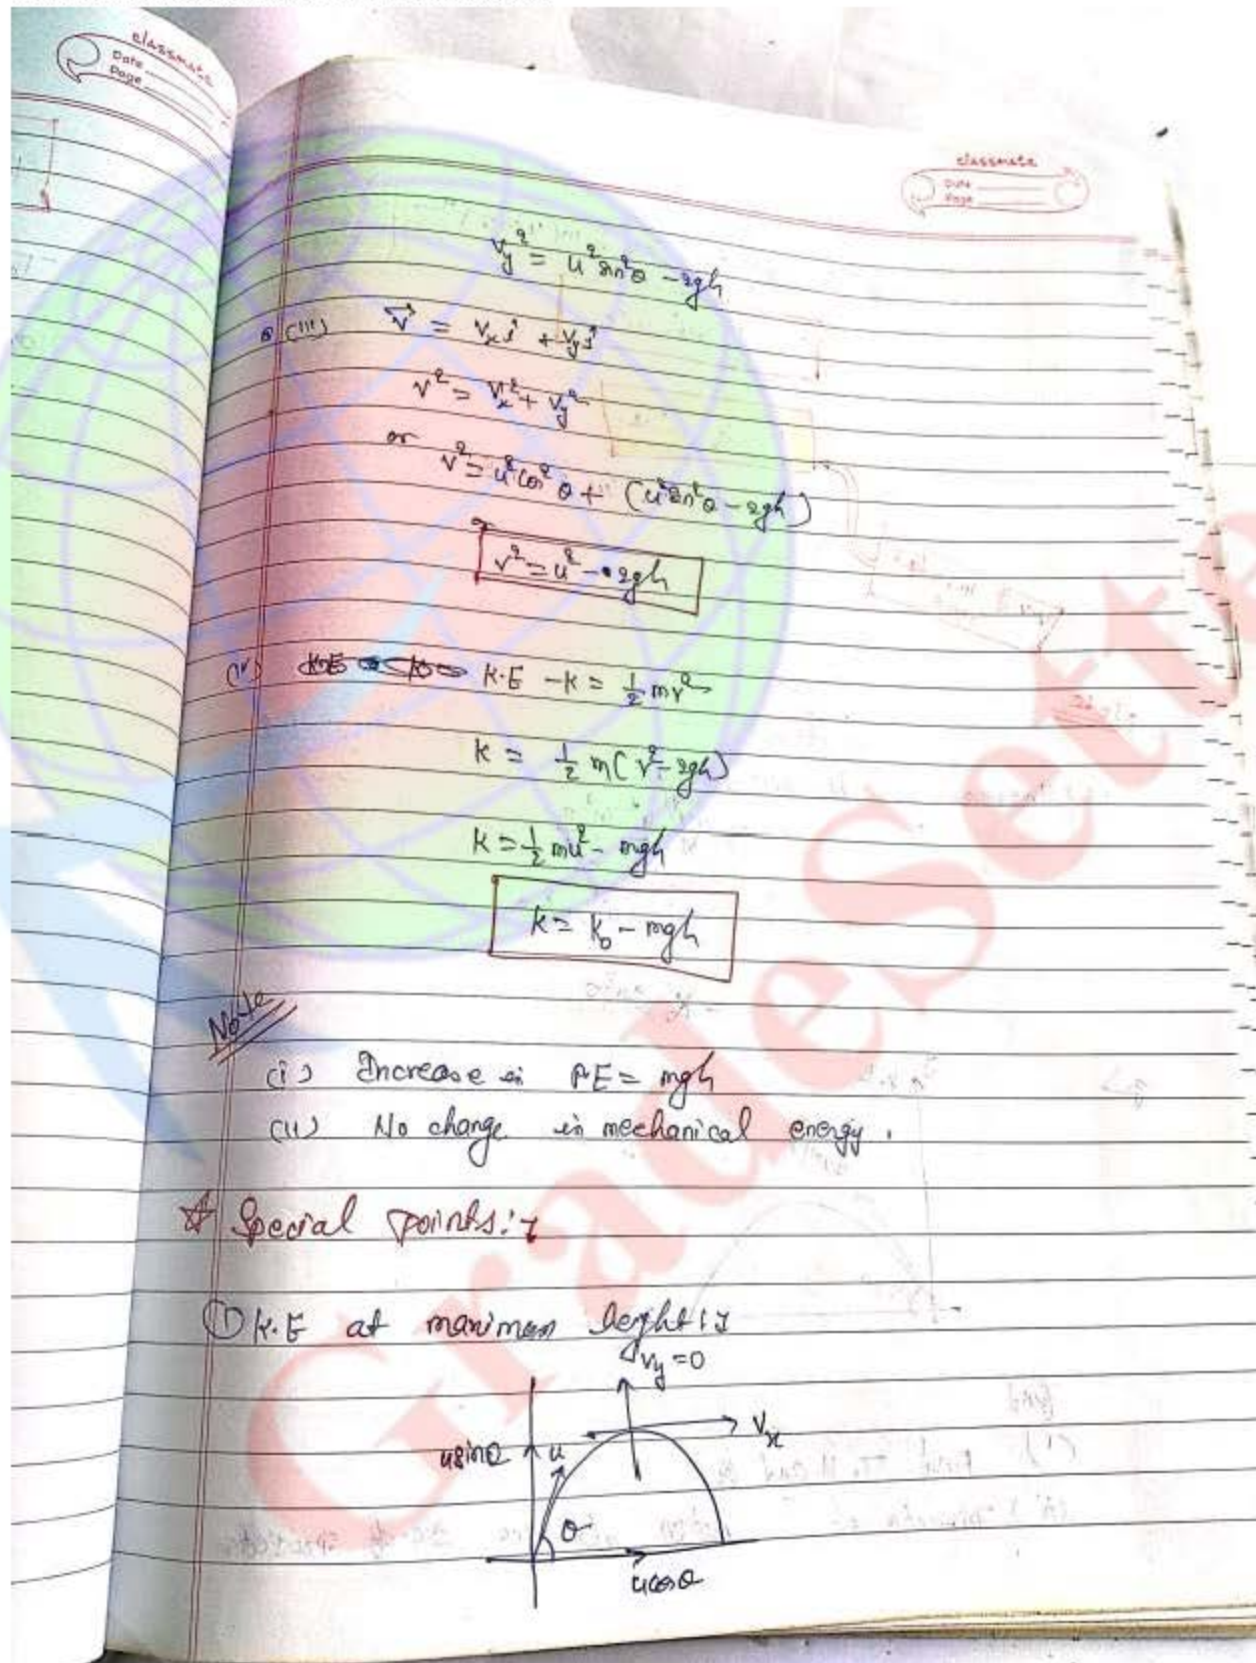 classmate
Date
Page
classmate
Date
Page
v_y² = u² sin²θ - 2gh
(iii) v⃗ = v_x î + v_y ĵ
v² = v_x² + v_y²
or v² = u² cos²θ + (u² sin²θ - 2gh)
v² = u² - 2gh
K.E - K = ½ mv²
K = ½ m(v² - 2gh)
K = ½ mu² - mgh
K = K₀ - mgh
Note
(i) Increase in PE = mgh
(ii) No change in mechanical energy.
☆ Special points:-
① K.E at maximum height:-
v_y = 0
v_x
usinθ
u
θ
ucosθ
GradeSette